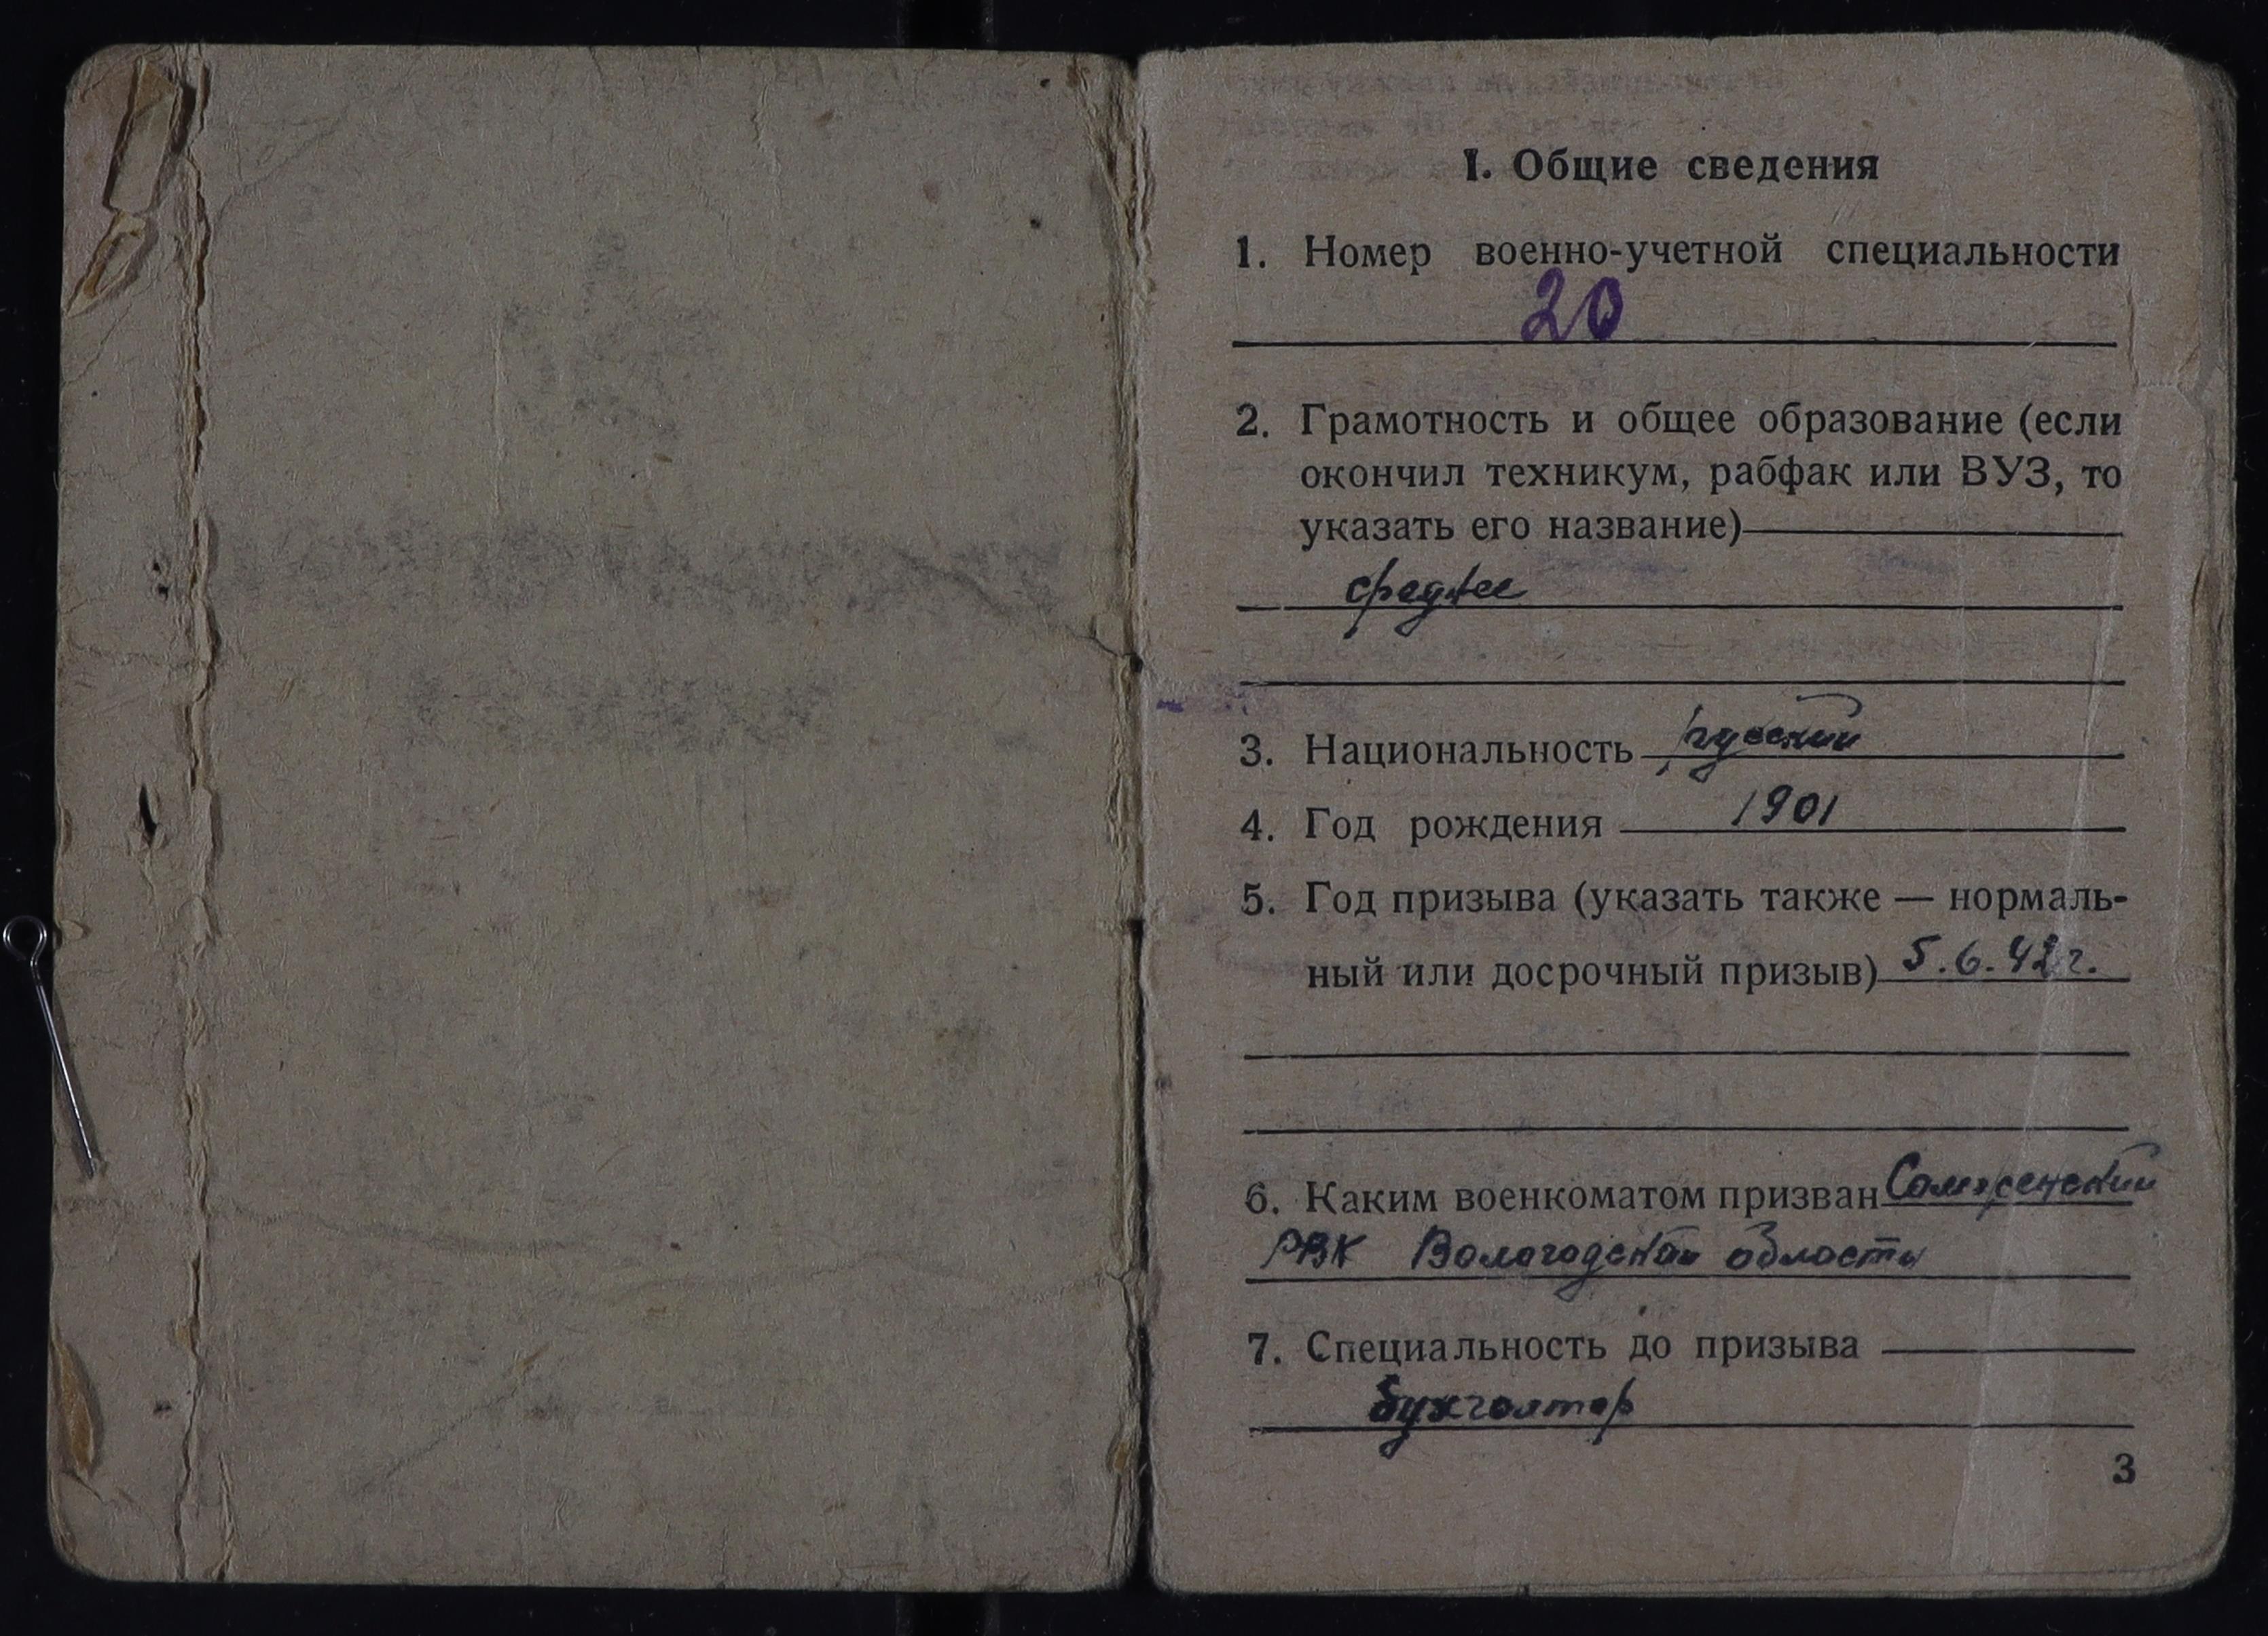 I. Общие сведения
1. Номер военно-учетной специальности
20
2. Грамотность и общее образование (если
окончил техникум, рабфак или ВУЗ, то
указать его название)
среднее
3. Национальность русский
4. Год рождения 1901
5. Год призыва (указать также — нормаль-
ный или досрочный призыв) 5.6.42 г.
6. Каким военкоматом призван
РВК Вологодской области
7. Специальность до призыва
бухгалтер
3